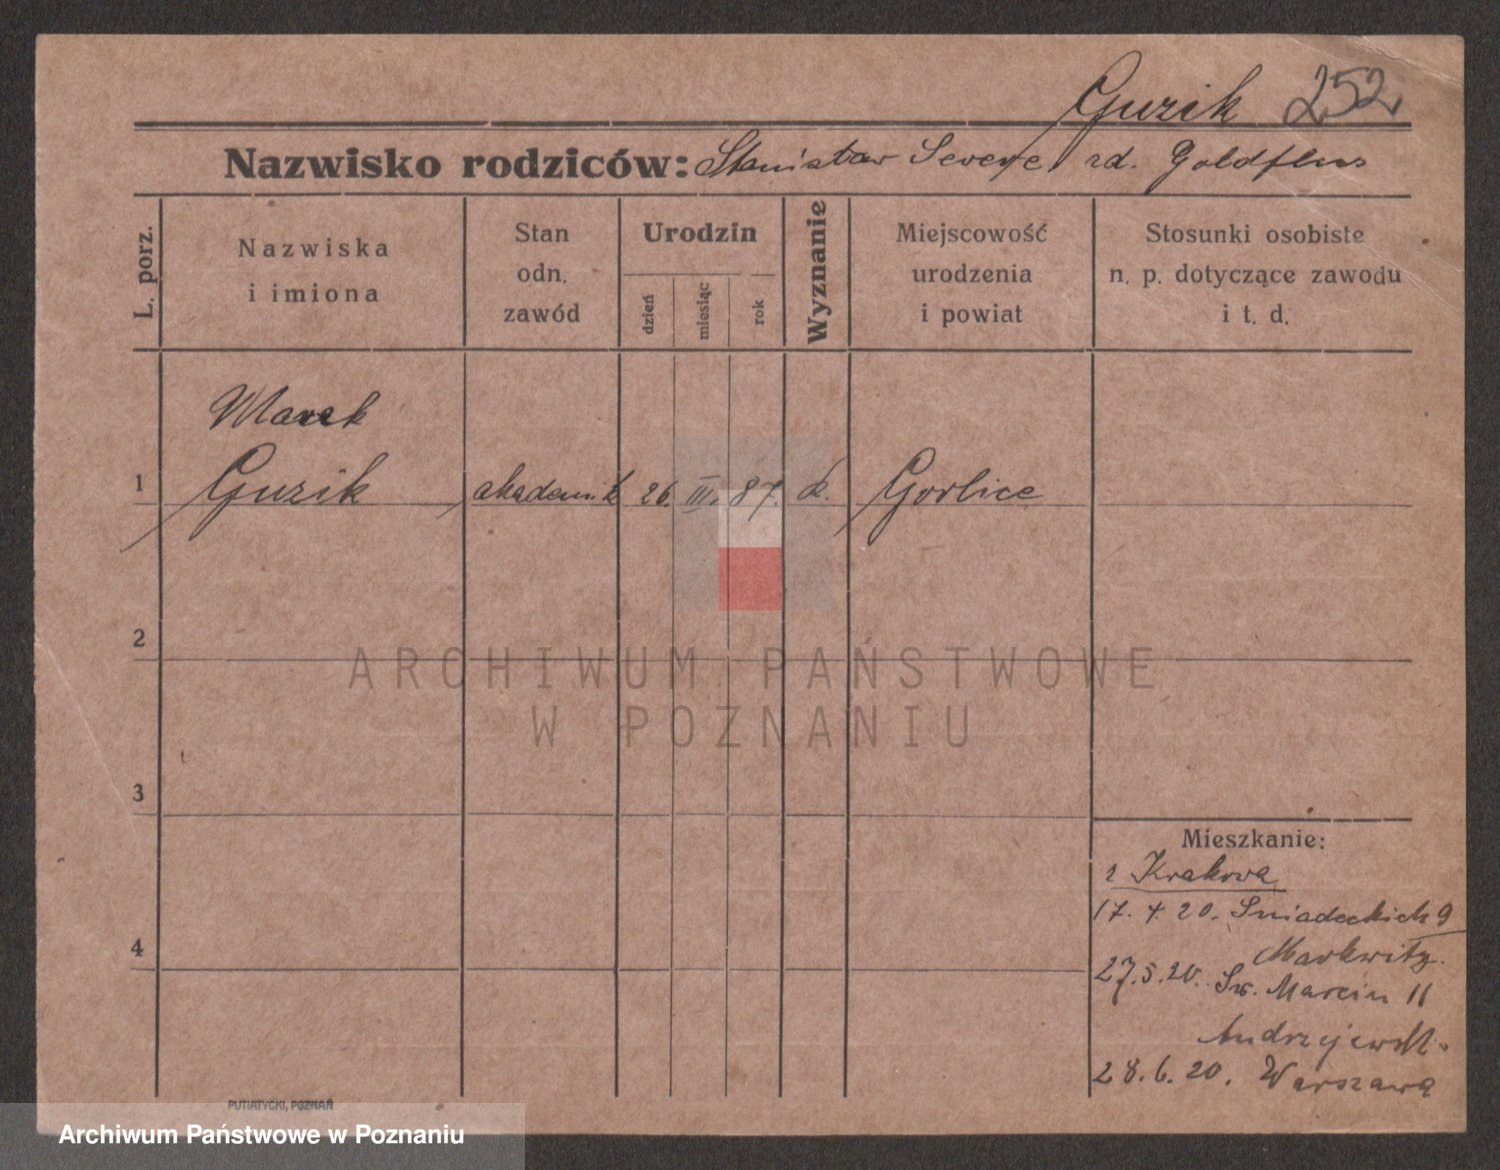 Guzik 252
Nazwisko rodziców: Stanisław Seweryn rd. Goldfluss
L. porz.
Nazwiska
i imiona
Stan
odn.
zawód
Urodzin
dzień
miesiąc
rok
Wyznanie
Miejscowość
urodzenia
i powiat
Stosunki osobiste
n. p. dotyczące zawodu
i t. d.
Marek
1 Guzik akademik 26. III. 87. k. Gorlice
2
ARCHIWUM PAŃSTWOWE
W POZNANIU
3
Mieszkanie:
z Krakowa
17. 4. 20. Śniadeckich 9
Markwitz.
4
27.5.20. Św. Marcin 11
Andrzejewsk.
28.6.20. Warszawa
PUTIATYCKI, POZNAŃ
Archiwum Państwowe w Poznaniu